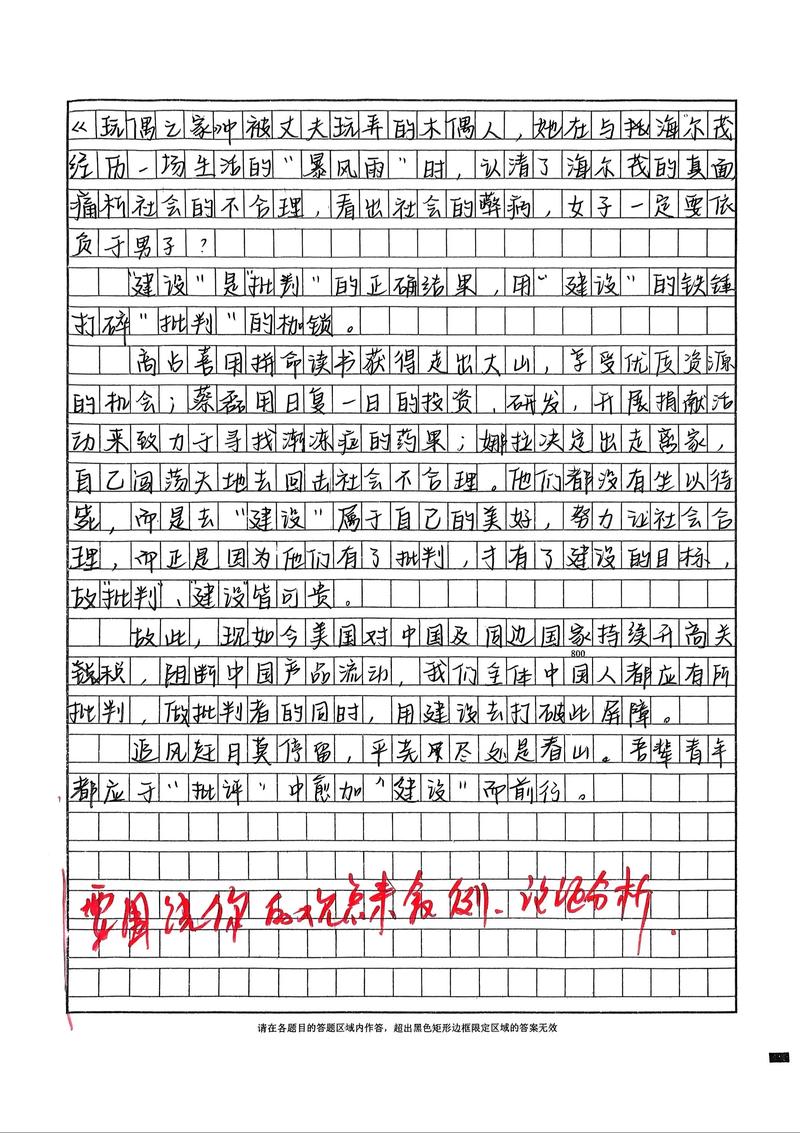 《玩偶之家》中被丈夫玩弄的木偶人，她在与托海尔茂
经历一场生活的"暴风雨"时，认清了海尔茂的真面
痛析社会的不合理，看出社会的弊病，女子一定要依
负于男子？
"建设"是"批判"的正确结果，用"建设"的铁锤
打碎"批判"的枷锁。
高占喜用拼命读书获得走出大山，享受优质资源
的机会；蔡磊用日复一日的投资、研发，开展捐献活
动来致力于寻找渐冻症的药果；娜拉决定出走离家，
自己闯荡天地去回击社会不合理。他们都没有坐以待
毙，而是去"建设"属于自己的美好，努力让社会合
理，而正是因为他们有了批判，才有了建设的目标，
故"批判"、"建设"皆可贵。
故此，现如今美国对中国及周边国家持续升高关
税，阻断中国产品流动，我们主体中国人都应有所
800
批判，做批判者的同时，用建设去打破此屏障。
追风赶月莫停留，平芜尽处是春山。吾辈青年
都应于"批评"中愈加"建设"而前行。
要围绕你的观点来叙例、论证分析.
请在各题目的答题区域内作答，超出黑色矩形边框限定区域的答案无效